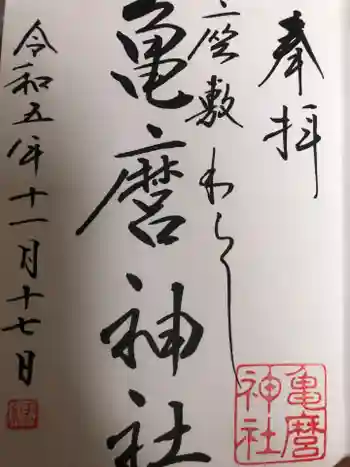 奉拝
座敷わらし
亀麿神社
令和五年十一月十七日
亀麿
神社